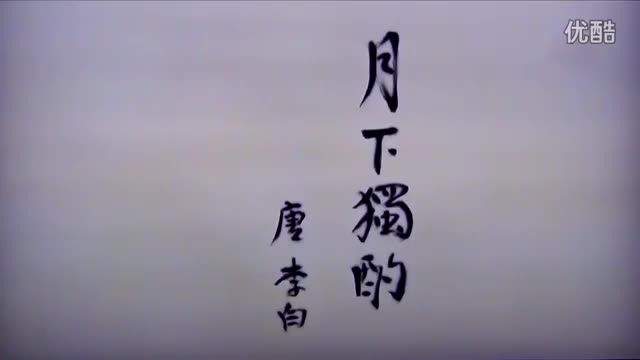 月下獨酌
唐 李白
优酷